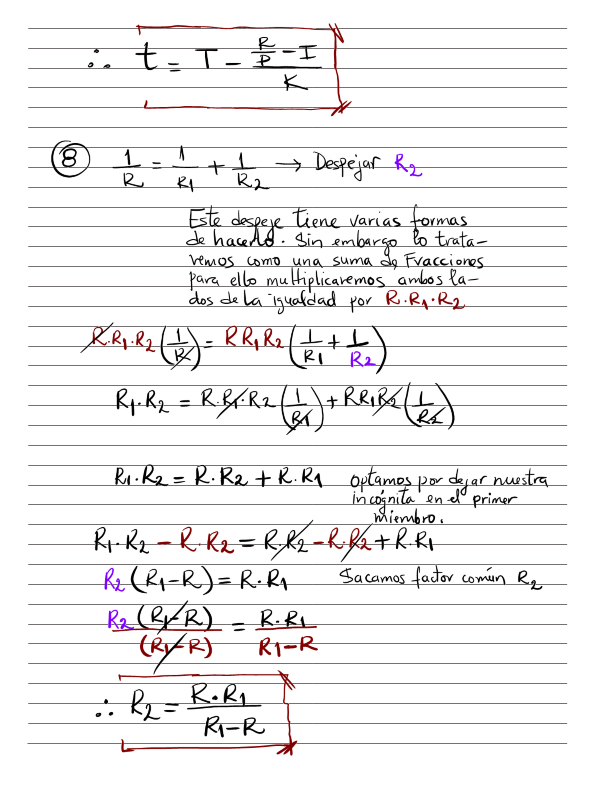 ∴ t = T - (R/P - I)/K
⑧ 1/R = 1/R1 + 1/R2 → Despejar R2
Este despeje tiene varias formas
de hacerlo. Sin embargo lo trata-
remos como una suma de Fracciones
para ello multiplicaremos ambos la-
dos de la igualdad por R·R1·R2
R·R1·R2 (1/R) = R R1 R2 (1/R1 + 1/R2)
R1·R2 = R·R1·R2 (1/R1) + R R1 R2 (1/R2)
R1·R2 = R·R2 + R·R1 Optamos por dejar nuestra
incógnita en el primer
miembro.
R1·R2 - R·R2 = R·R2 - R·R2 + R·R1
R2 (R1-R) = R·R1 Sacamos factor común R2
R2 (R1-R)/(R1-R) = R·R1/R1-R
∴ R2 = R·R1/R1-R